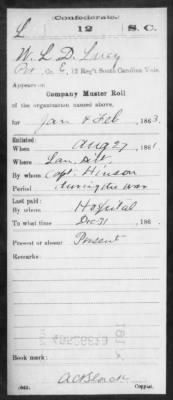 Confederate.
L 12 S. C.
W. L. D. Lucy
Pvt. Co. E, 12 Reg't South Carolina Vols.
Appears on
Company Muster Roll
of the organization named above,
for Jan & Feb, 1863.
Enlisted:
When Aug 27, 1861
Where Lan. Dist.
By whom Capt. Hinson
Period during the war
Last paid:
By whom Hospital
To what time Dec 31, 186
Present or absent Present
Remarks:
Book mark:
(642) Copyist.